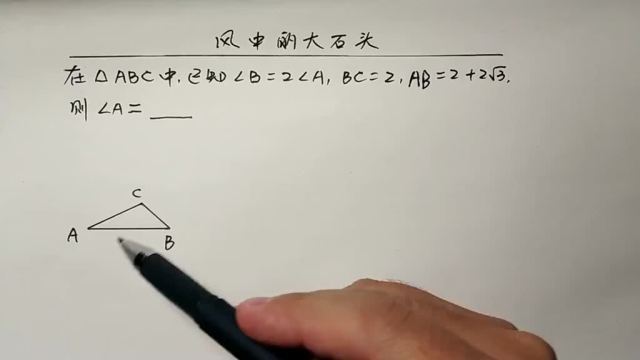 风中的大石头
在△ABC中,已知∠B=2∠A, BC=2, AB=2+2√3,
则∠A=____
C
A
B